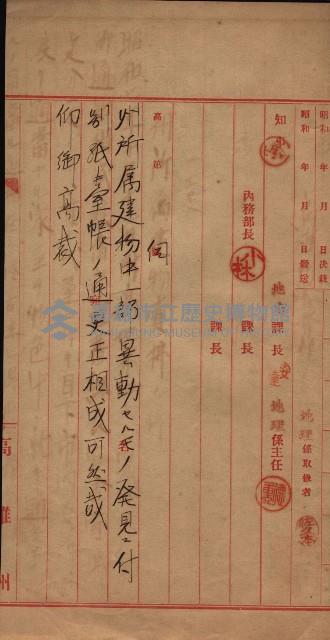 昭和　年　月　日決裁
昭和　年　月　日發送
地理係取扱者
知事
地理課長
地理係主任
內務部長
課長
課長
高　第
伺
所属建物中一部異動セルモノ発見ニ付
別紙臺帳ノ通更正相成可然哉
仰御高裁
高雄州
高雄市立歷史博物館